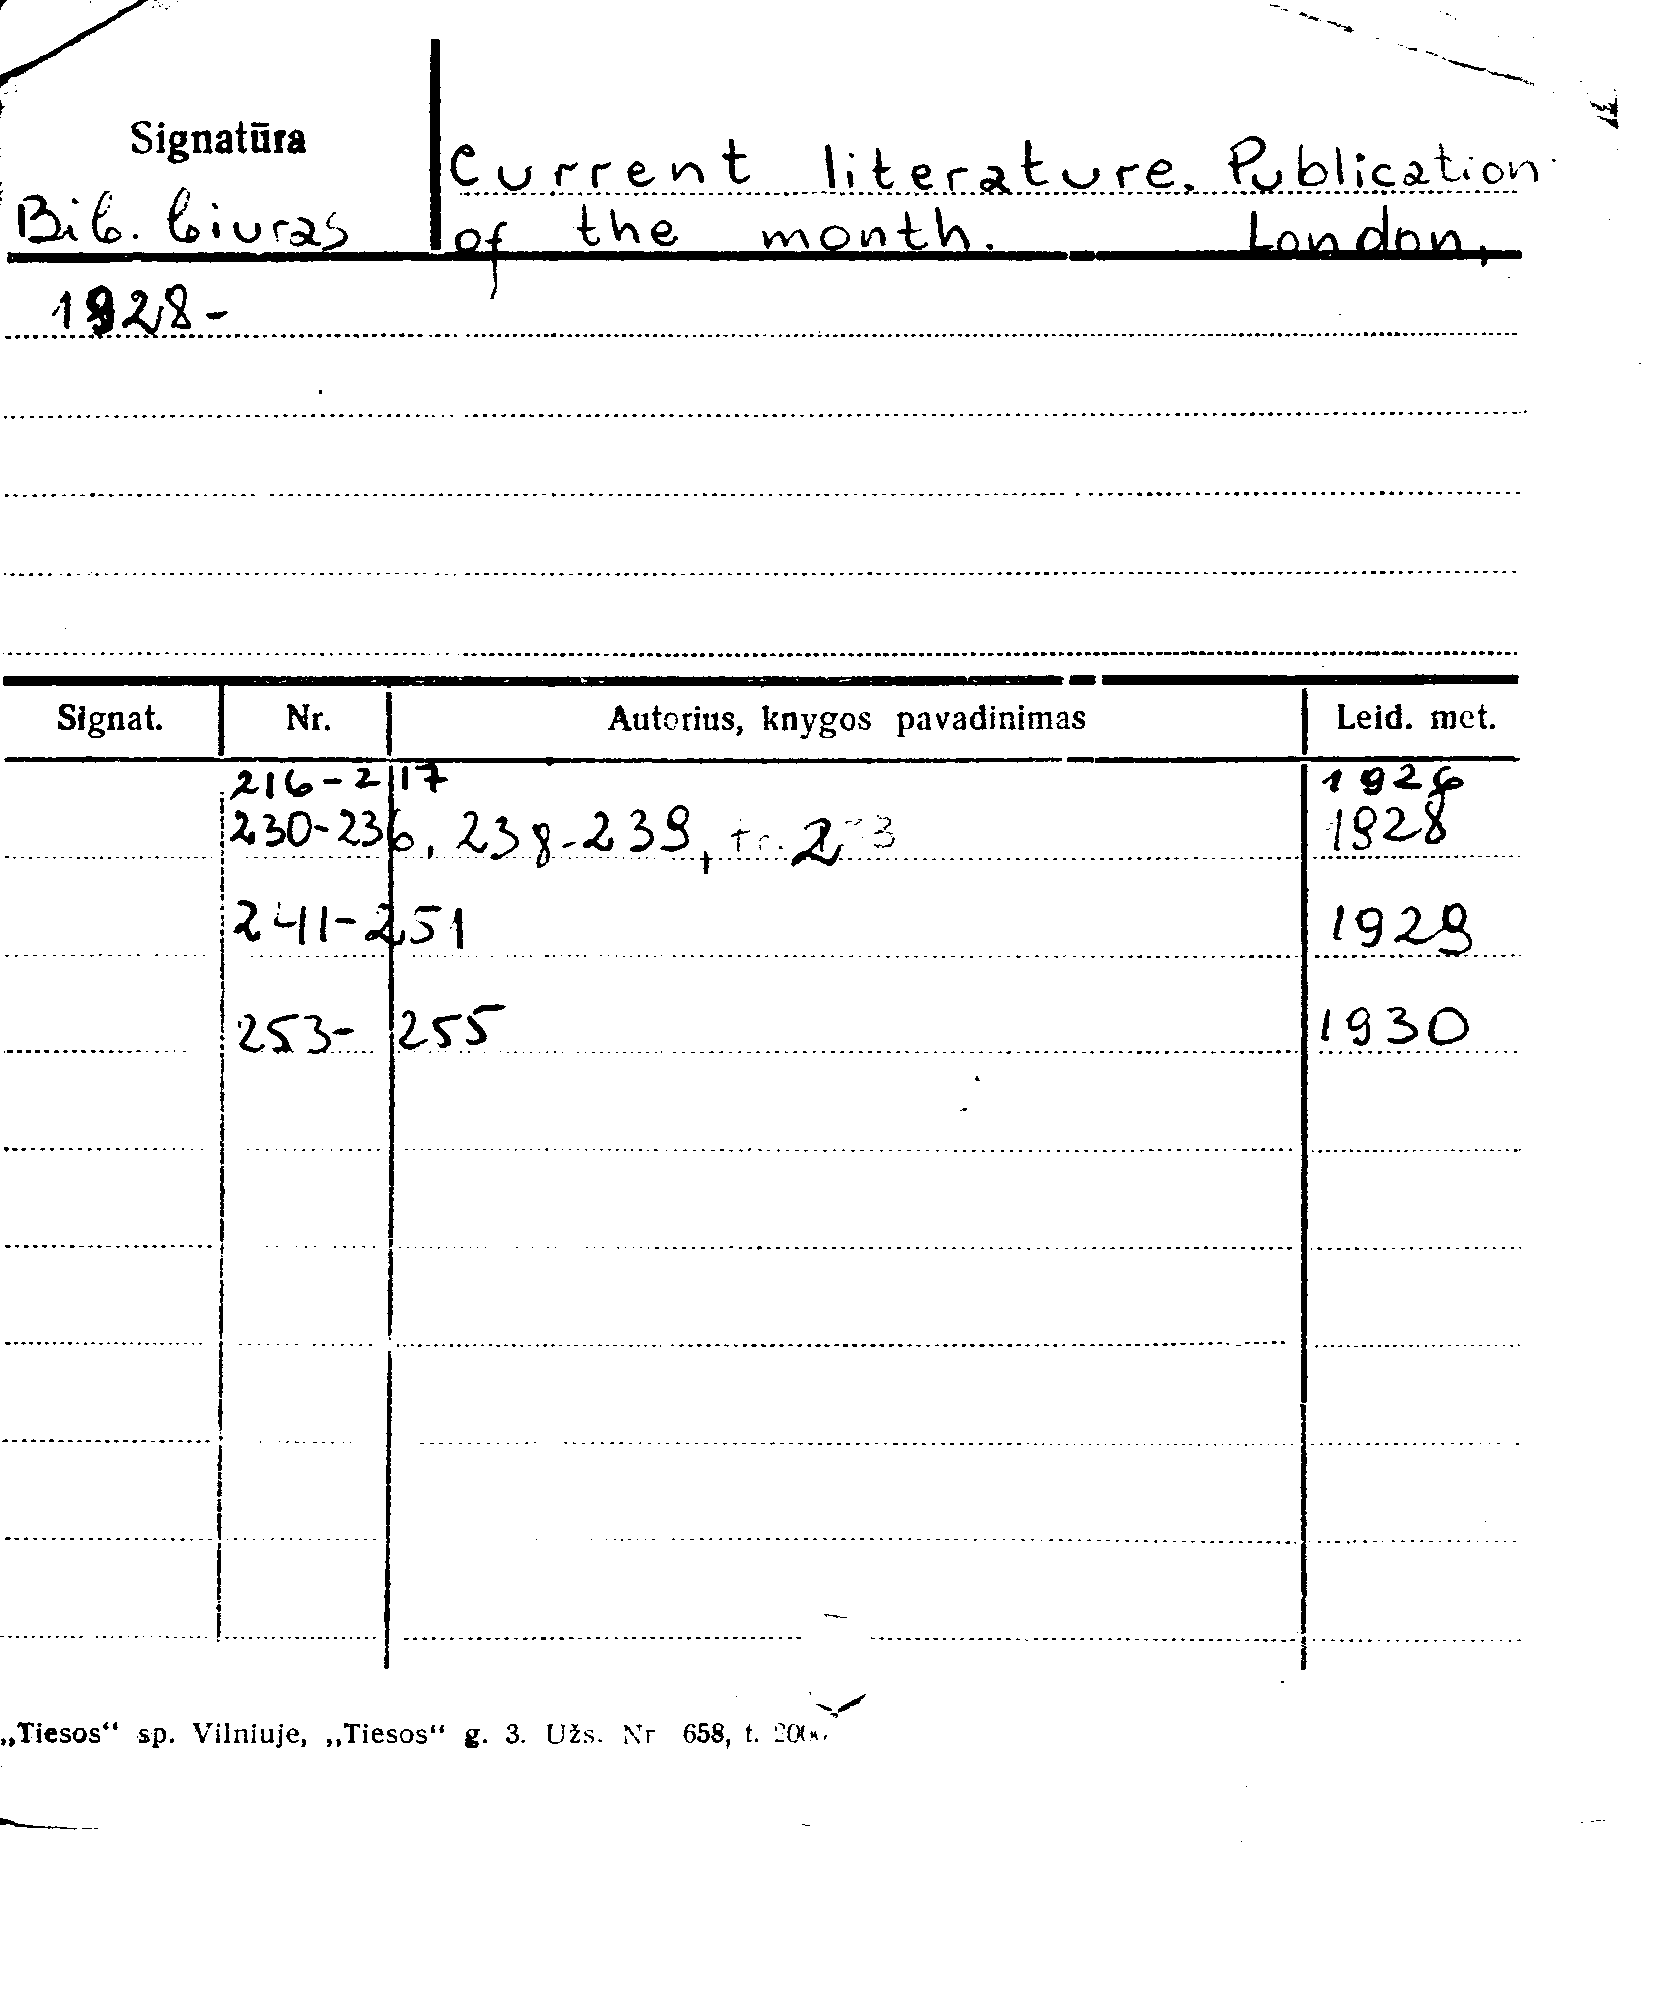 Signatūra
Bib. biuras
Current literature. Publication
of the month. London,
1928-
Signat. Nr. Autorius, knygos pavadinimas Leid. met.
216-217 1926
230-236, 238-239, 1928
241-251 1929
253- 255 1930
„Tiesos“ sp. Vilniuje, „Tiesos“ g. 3. Užs. Nr 658, t.